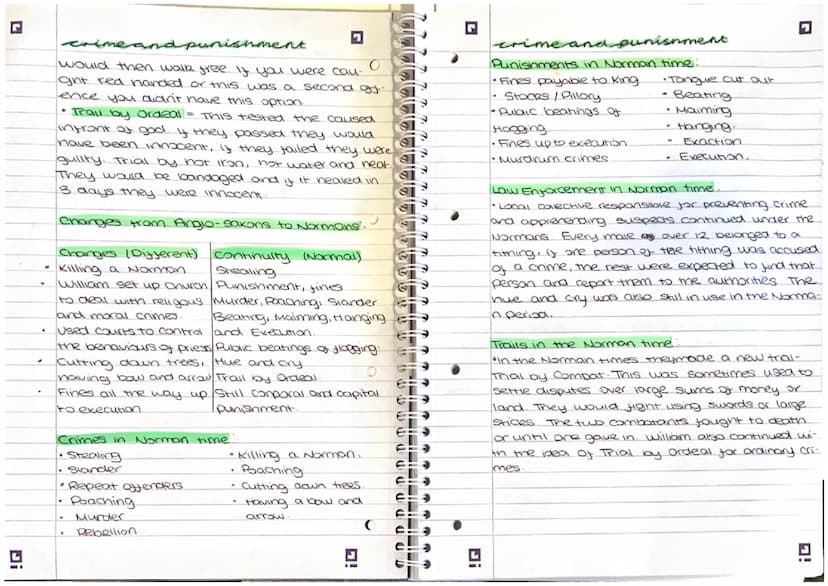 crime and punishment
would then walk free. If you were cau-
ght red handed or this was a second off-
ence you didn't have this option.
• Trail by Ordeal = This tested the caused
infront of god. If they passed they would
have been innocent, if they failed they were
guilty. Trial by hot iron, hot water and heat.
They would be bandaged and if it healed in
3 days they were innocent.
Changes from Anglo-saxons to Normans:
Changes (Different)
• Killing a Norman
• William set up Church
to deal with religous
and moral crimes.
• Used courts to control
the behaviours of priess
• Cutting down trees,
having bow and arrow
• Fines all the way up
to execution
Continuity (Normal)
Stealing
Punishment, fines
Murder, Poaching, Slander
Beating, Maiming, Hanging
and Execution.
Public beatings of flogging.
Hue and cry
Trail by Ordeal
Still corporal and capital
punishment.
Crimes in Norman time:
• Stealing
• Slander
• Repeat offenders
• Poaching
• Murder
• Rebellion
• Killing a Norman.
• Poaching
• Cutting down trees
• Having a bow and
arrow.
crime and punishment
Punishments in Norman time:
• Fines payable to King
• Stocks / Pillory
• Public beatings of
flogging
• Fines up to execution
• Murdrum crimes
• Tongue cut out
• Beating
• Maiming
• Hanging.
• Exaction
• Execution.
Law Enforcement in Norman time:
• Local collective responsible for preventing crime
and apprerending suspects continued under the
Normans. Every male over 12 belonged to a
tithing, if one person of the tithing was accused
of a crime, the rest were expected to find that
person and report them to the authorities. The
hue and cry was also still in use in the Norma-
n period.
Trails in the Norman time:
• In the Norman times they made a new trial-
Trial by Combat. This was sometimes used to
settle disputes over large sums of money or
land. They would fight using swords or large
sticks. The two combatants fought to death
or until one gave in. William also continued wi-
th the idea of Trial by Ordeal for ordinary cri-
mes.